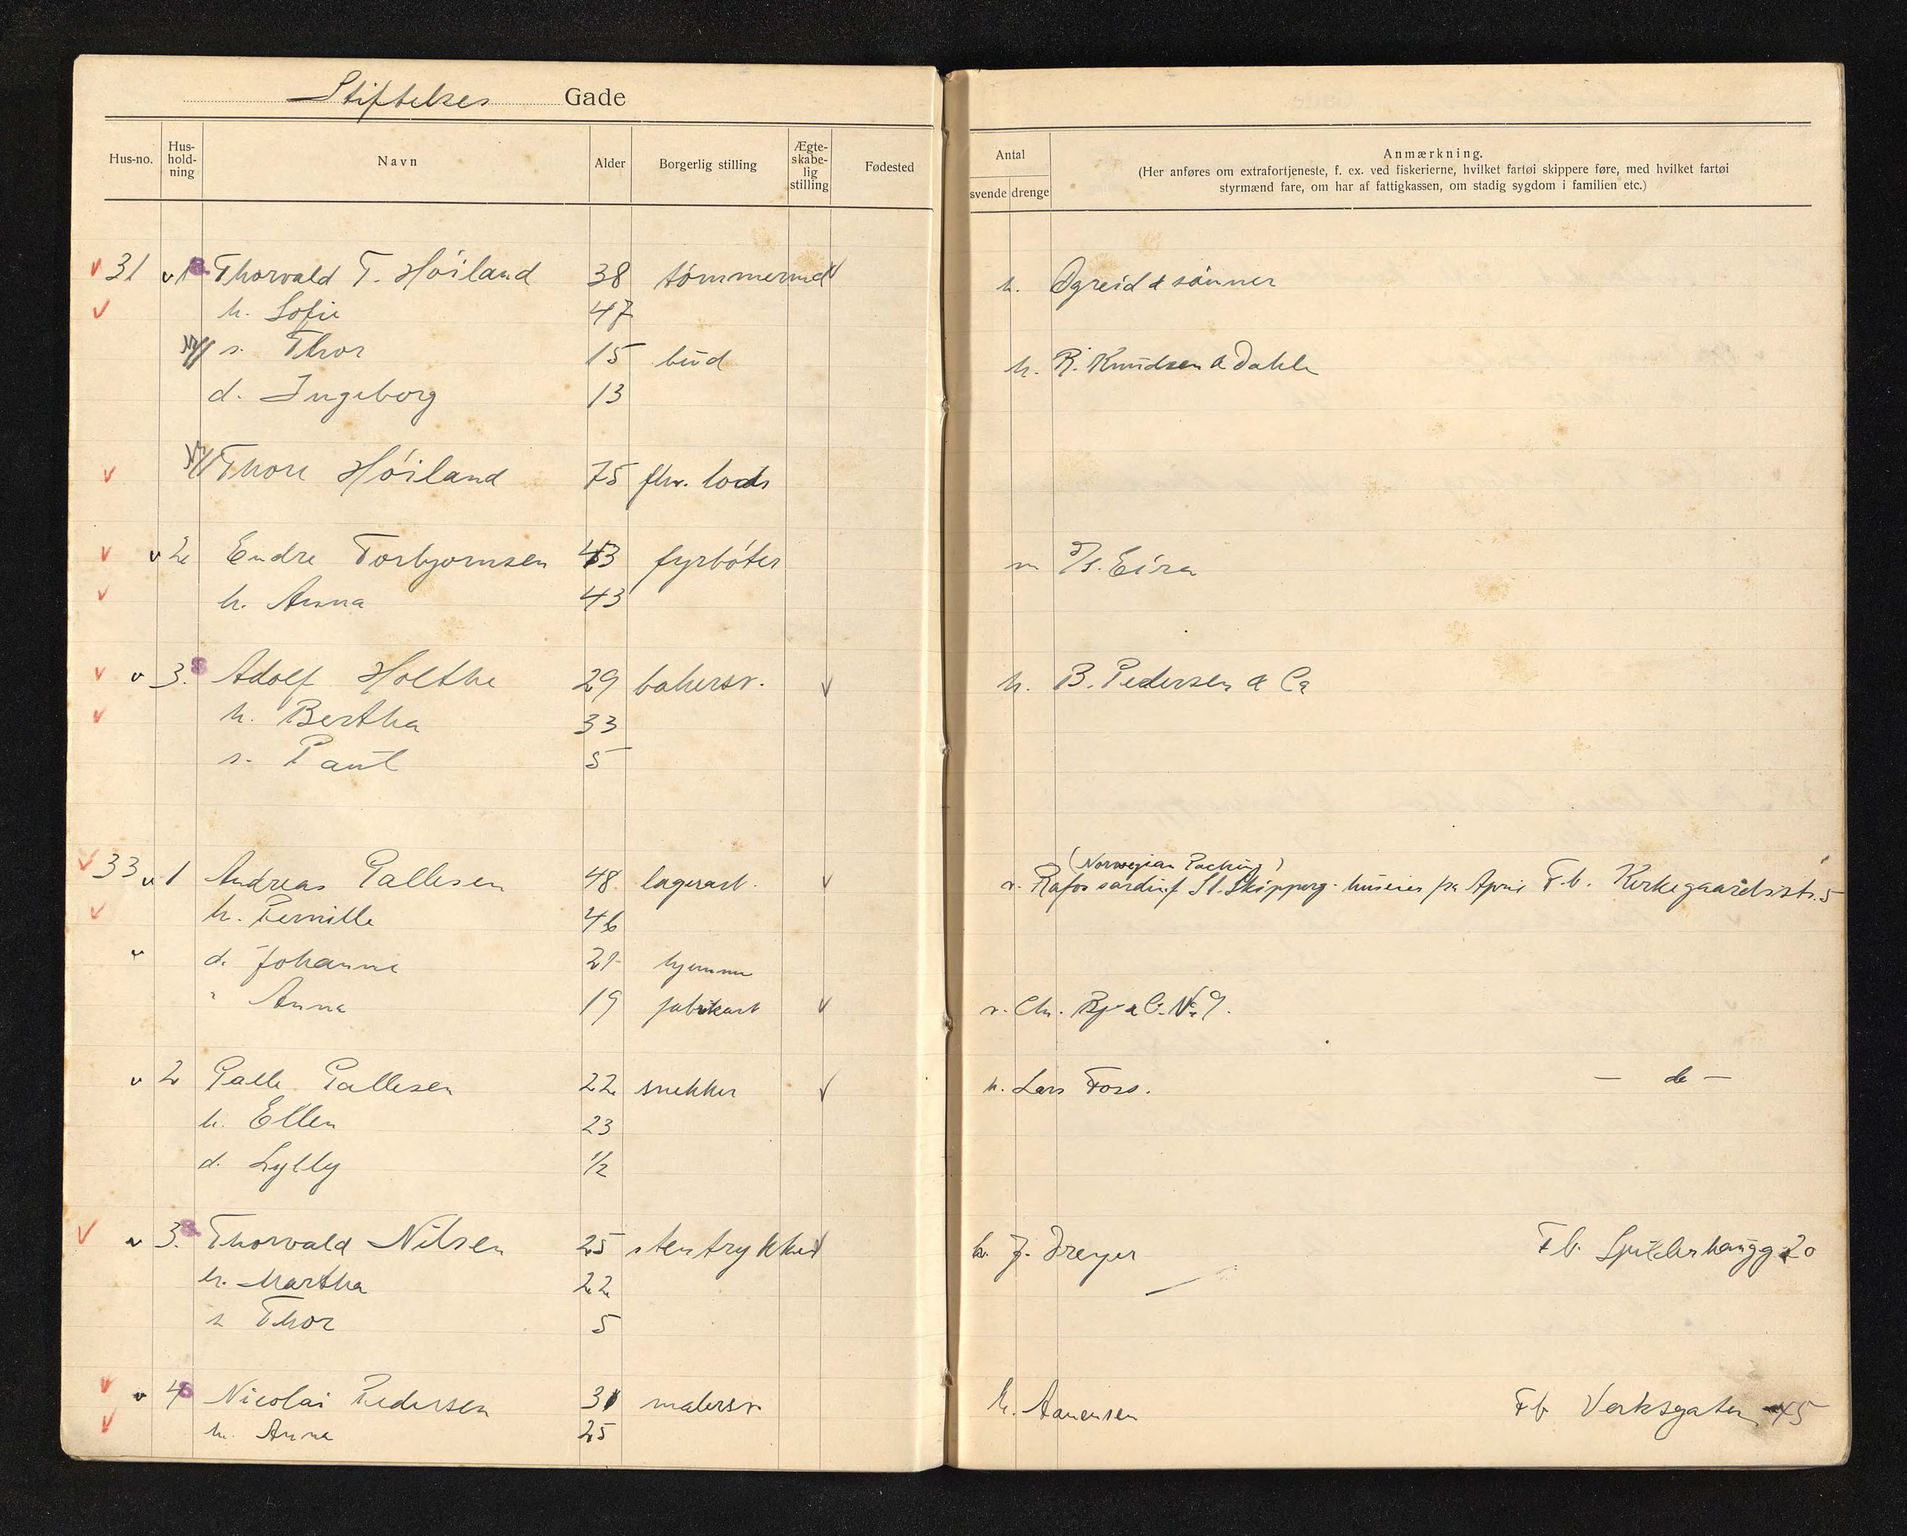 Stiftelses Gade
Hus-no. Hus-hold-ning Navn Alder Borgerlig stilling Ægte-skabe-lig stilling Fødested Antal svende drenge Anmærkning.
(Her anføres om extrafortjeneste, f. ex. ved fiskerierne, hvilket fartøi skippere føre, med hvilket fartøi
styrmænd fare, om har af fattigkassen, om stadig sygdom i familien etc.)
31 1 Thorvald T. Höiland 38 tömmermd h. Ogreid & sönner
h. Sofie 47
s. Thor 15 bud h. R. Knudsen & Dahle
d. Ingeborg 13
Thore Höiland 75 fhv. lods
2 Endre Torbjornsen 43 fyrböter m D/S. Eira
h. Anna 43
3. Adolf Holthe 29 bakersv. h. B. Pedersen & Co
h. Bertha 33
s. Paul 5
(Norwegian Packing)
33 1 Andreas Pallesen 48 lagerarb. v. Rafos sardinf St. Skipperg. huseier fra April F.b. Kirkegaardsstr. 5
h. Pernille 46
d. Johanne 21 hjemme
" Anna 19 fabrikarb v. Chr. Bj & Co. No 9.
2 Palle Pallesen 22 snekker h. Lars Foss. — do —
h. Ellen 23
d. Lylly 1/2
3. Thorvald Nilsen 25 stentrykker h. J. Dreyer F b. Spilderhaugg 20
h. Martha 22
s Thor 5
4 Nicolai Pedersen 31 malersv h. Aanensen F b Verksgaten 45
h. Anna 25